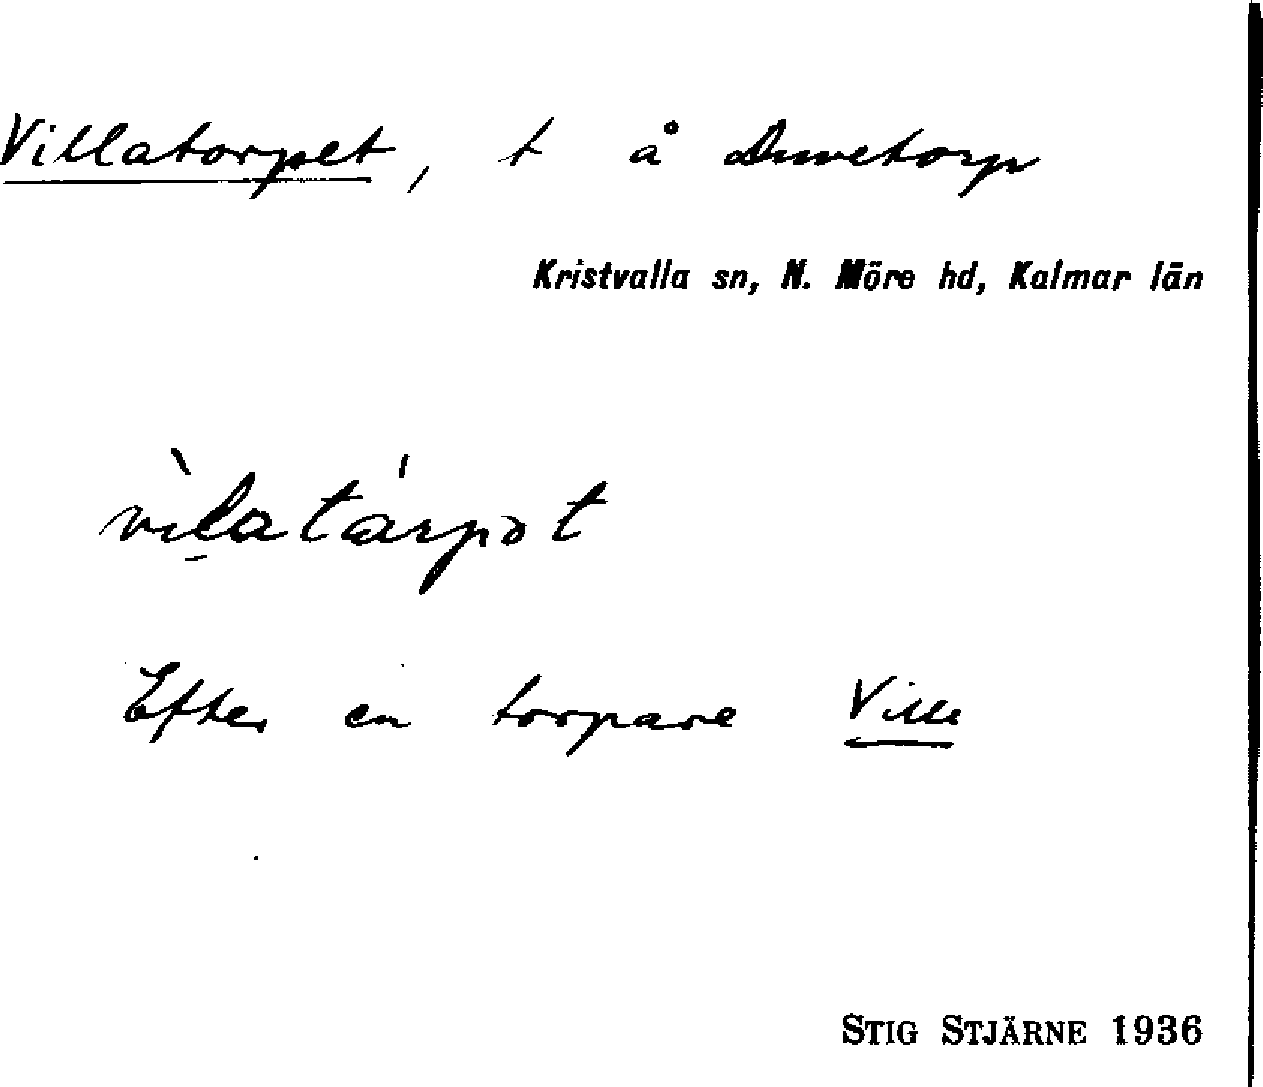 Villatorpet, t å Duvetorp
Kristvalla sn, N. Möre hd, Kalmar län
vìlatárpət
Efter en torpare Ville
STIG STJÄRNE 1936